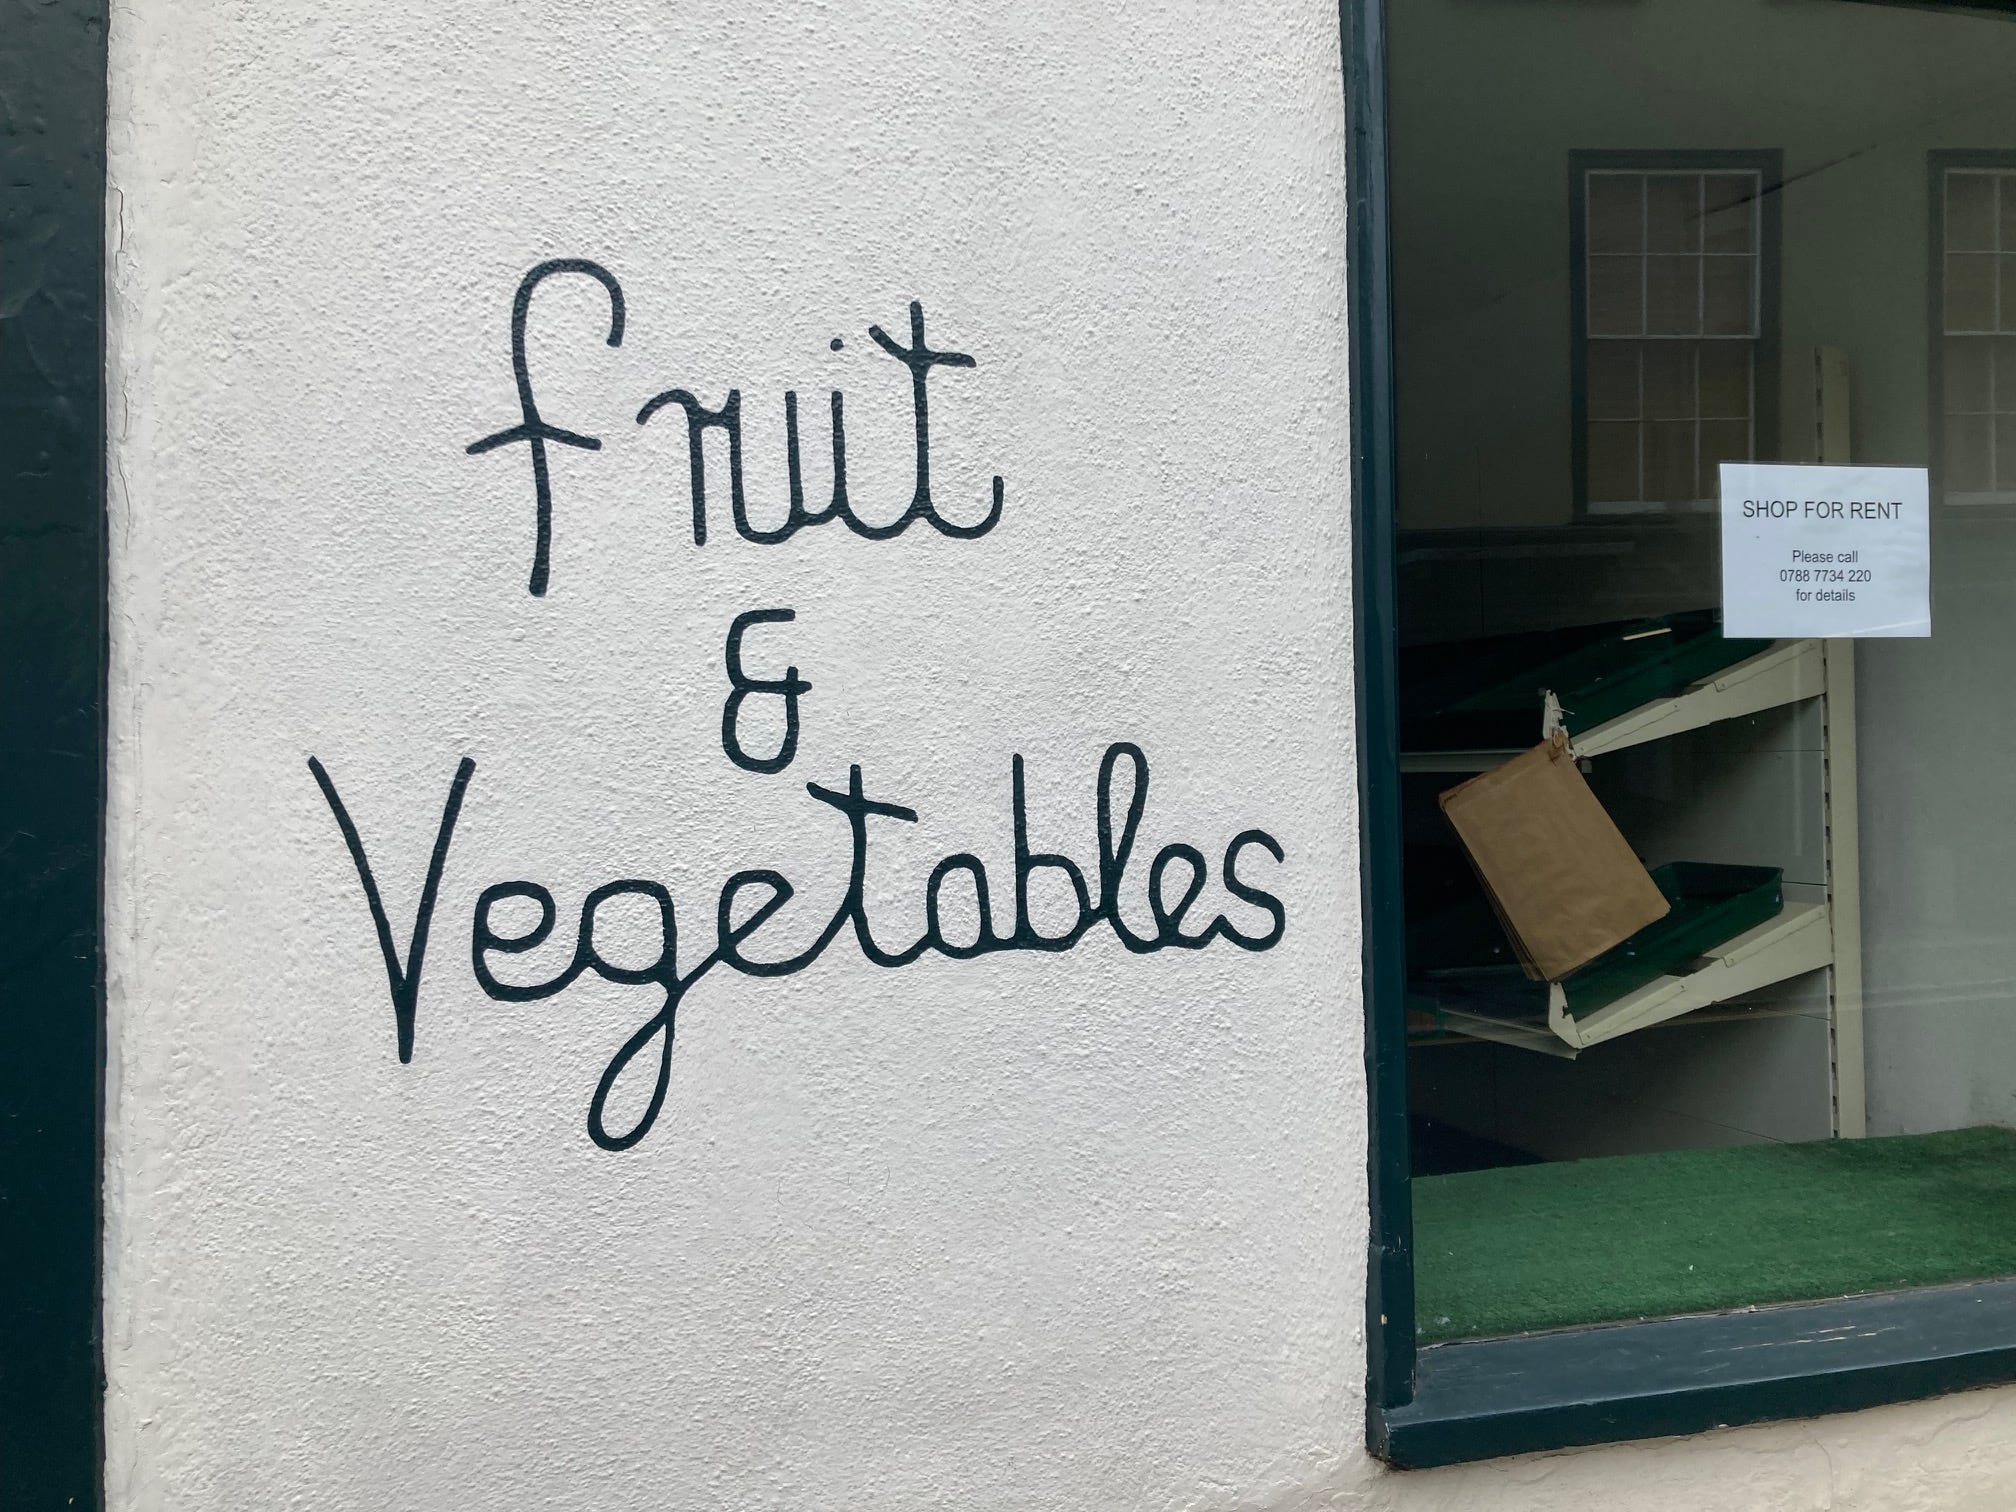 Fruit
&
Vegetables
SHOP FOR RENT
Please call
0788 7734 220
for details